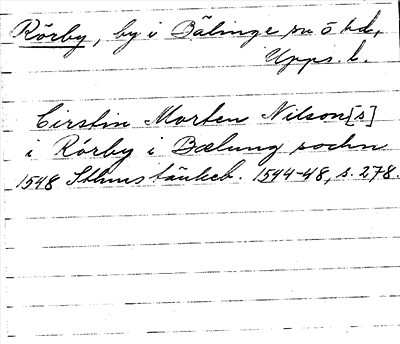 Rörby, by i Bälinge sn o hd,
Upps. l.
Cirstin Morten Nilson[s]
i Rörby i Bælung sochn
1548 Sthms tänkeb. 1544-48, s. 278.